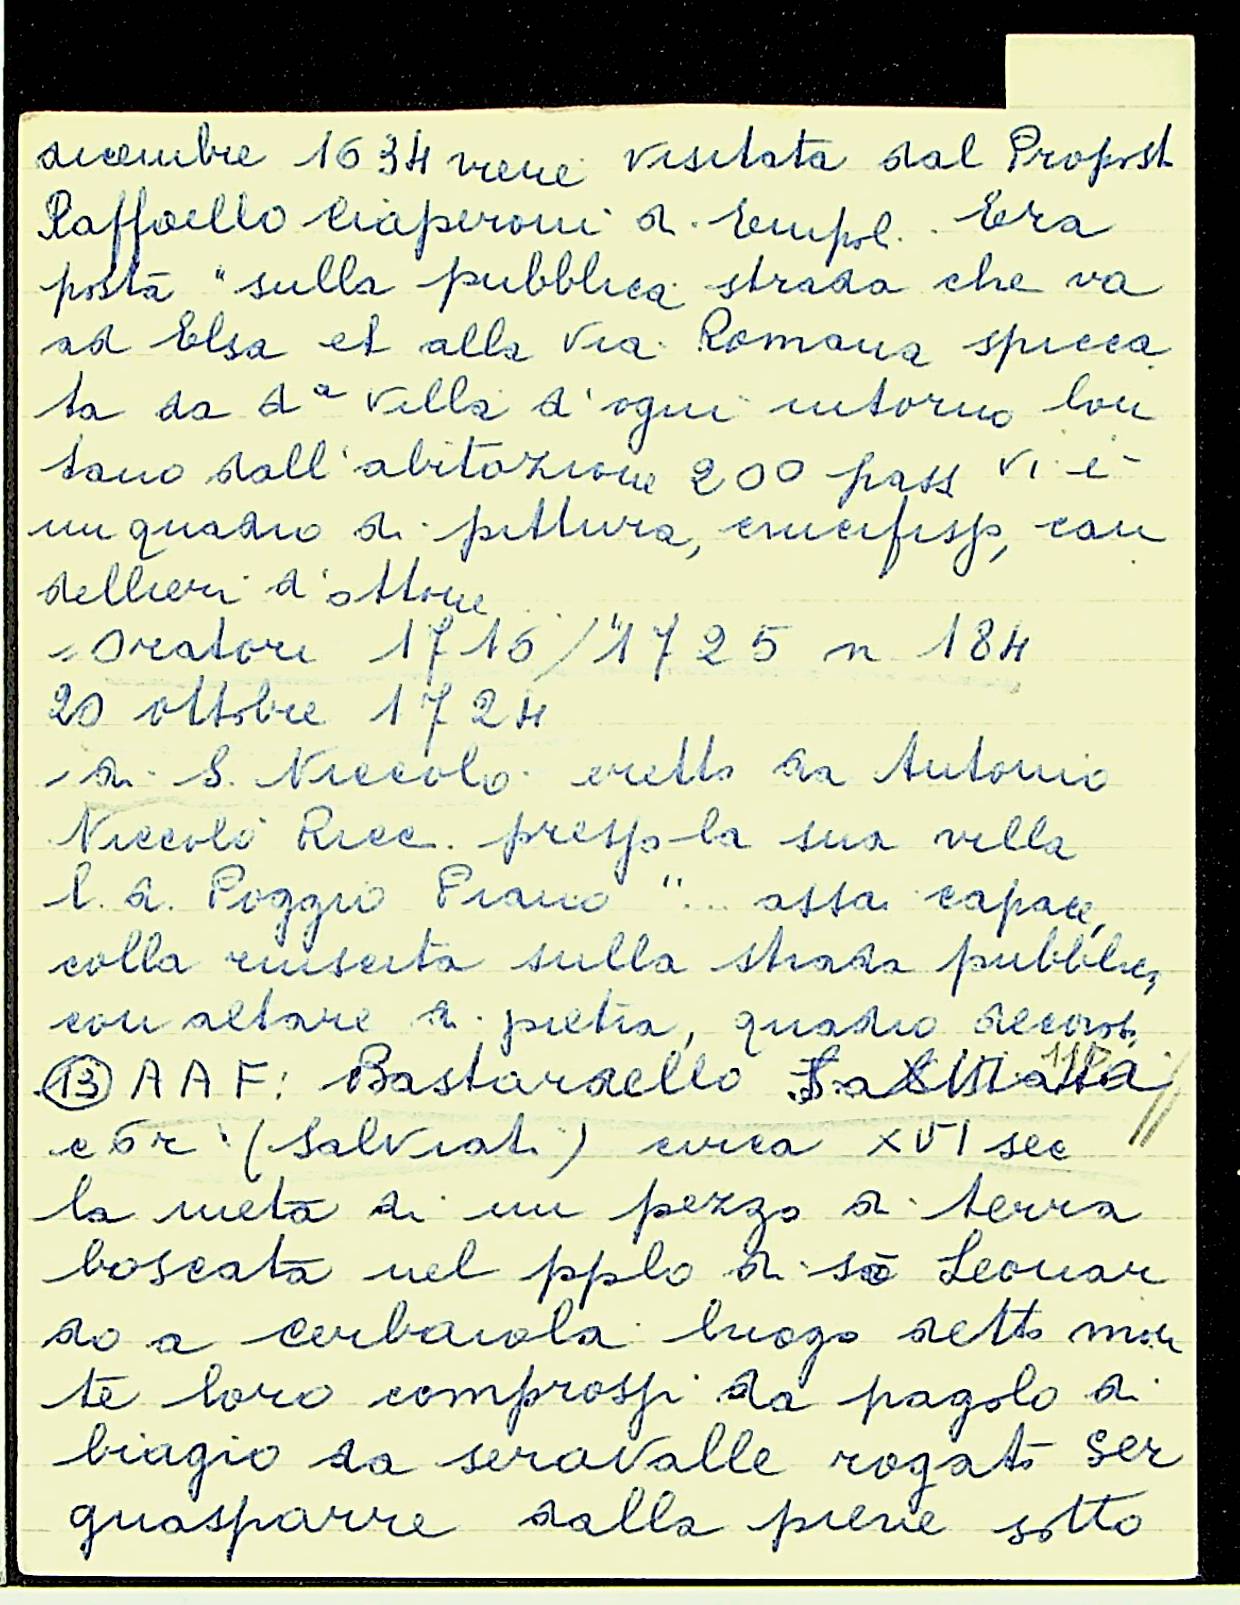 dicembre 1634 viene visitata dal Propost
Raffaello Ciaperoni di Empol. Era
posta "sulla pubblica strada che va
ad Elsa et alla via Romana spicca
ta da dª villa d'ogni intorno lon
tano dall'abitazione 200 passi vi è
un quadro di pittura, crucifisso, can
dellieri d'ottone
- Oratori 1716/1725 n 184
20 ottobre 1724
- di S. Niccolo eretto da Antonio
Niccolò Ricc. presso la sua villa
l. d. Poggio Piano "... assai capace,
colla riuscita sulla strada pubblic,
con altare di pietra, quadro decoros.
(13) AAF: Bastardello
c 6r (Salviati) circa XVI sec
la metà di un pezzo di terra
boscata nel pplo di sco Leonar
do a cerbaiola luogo detto mon
te loro comprossi da pagolo di
biagio da seravalle rogato Ser
guasparre dalla pieve sotto